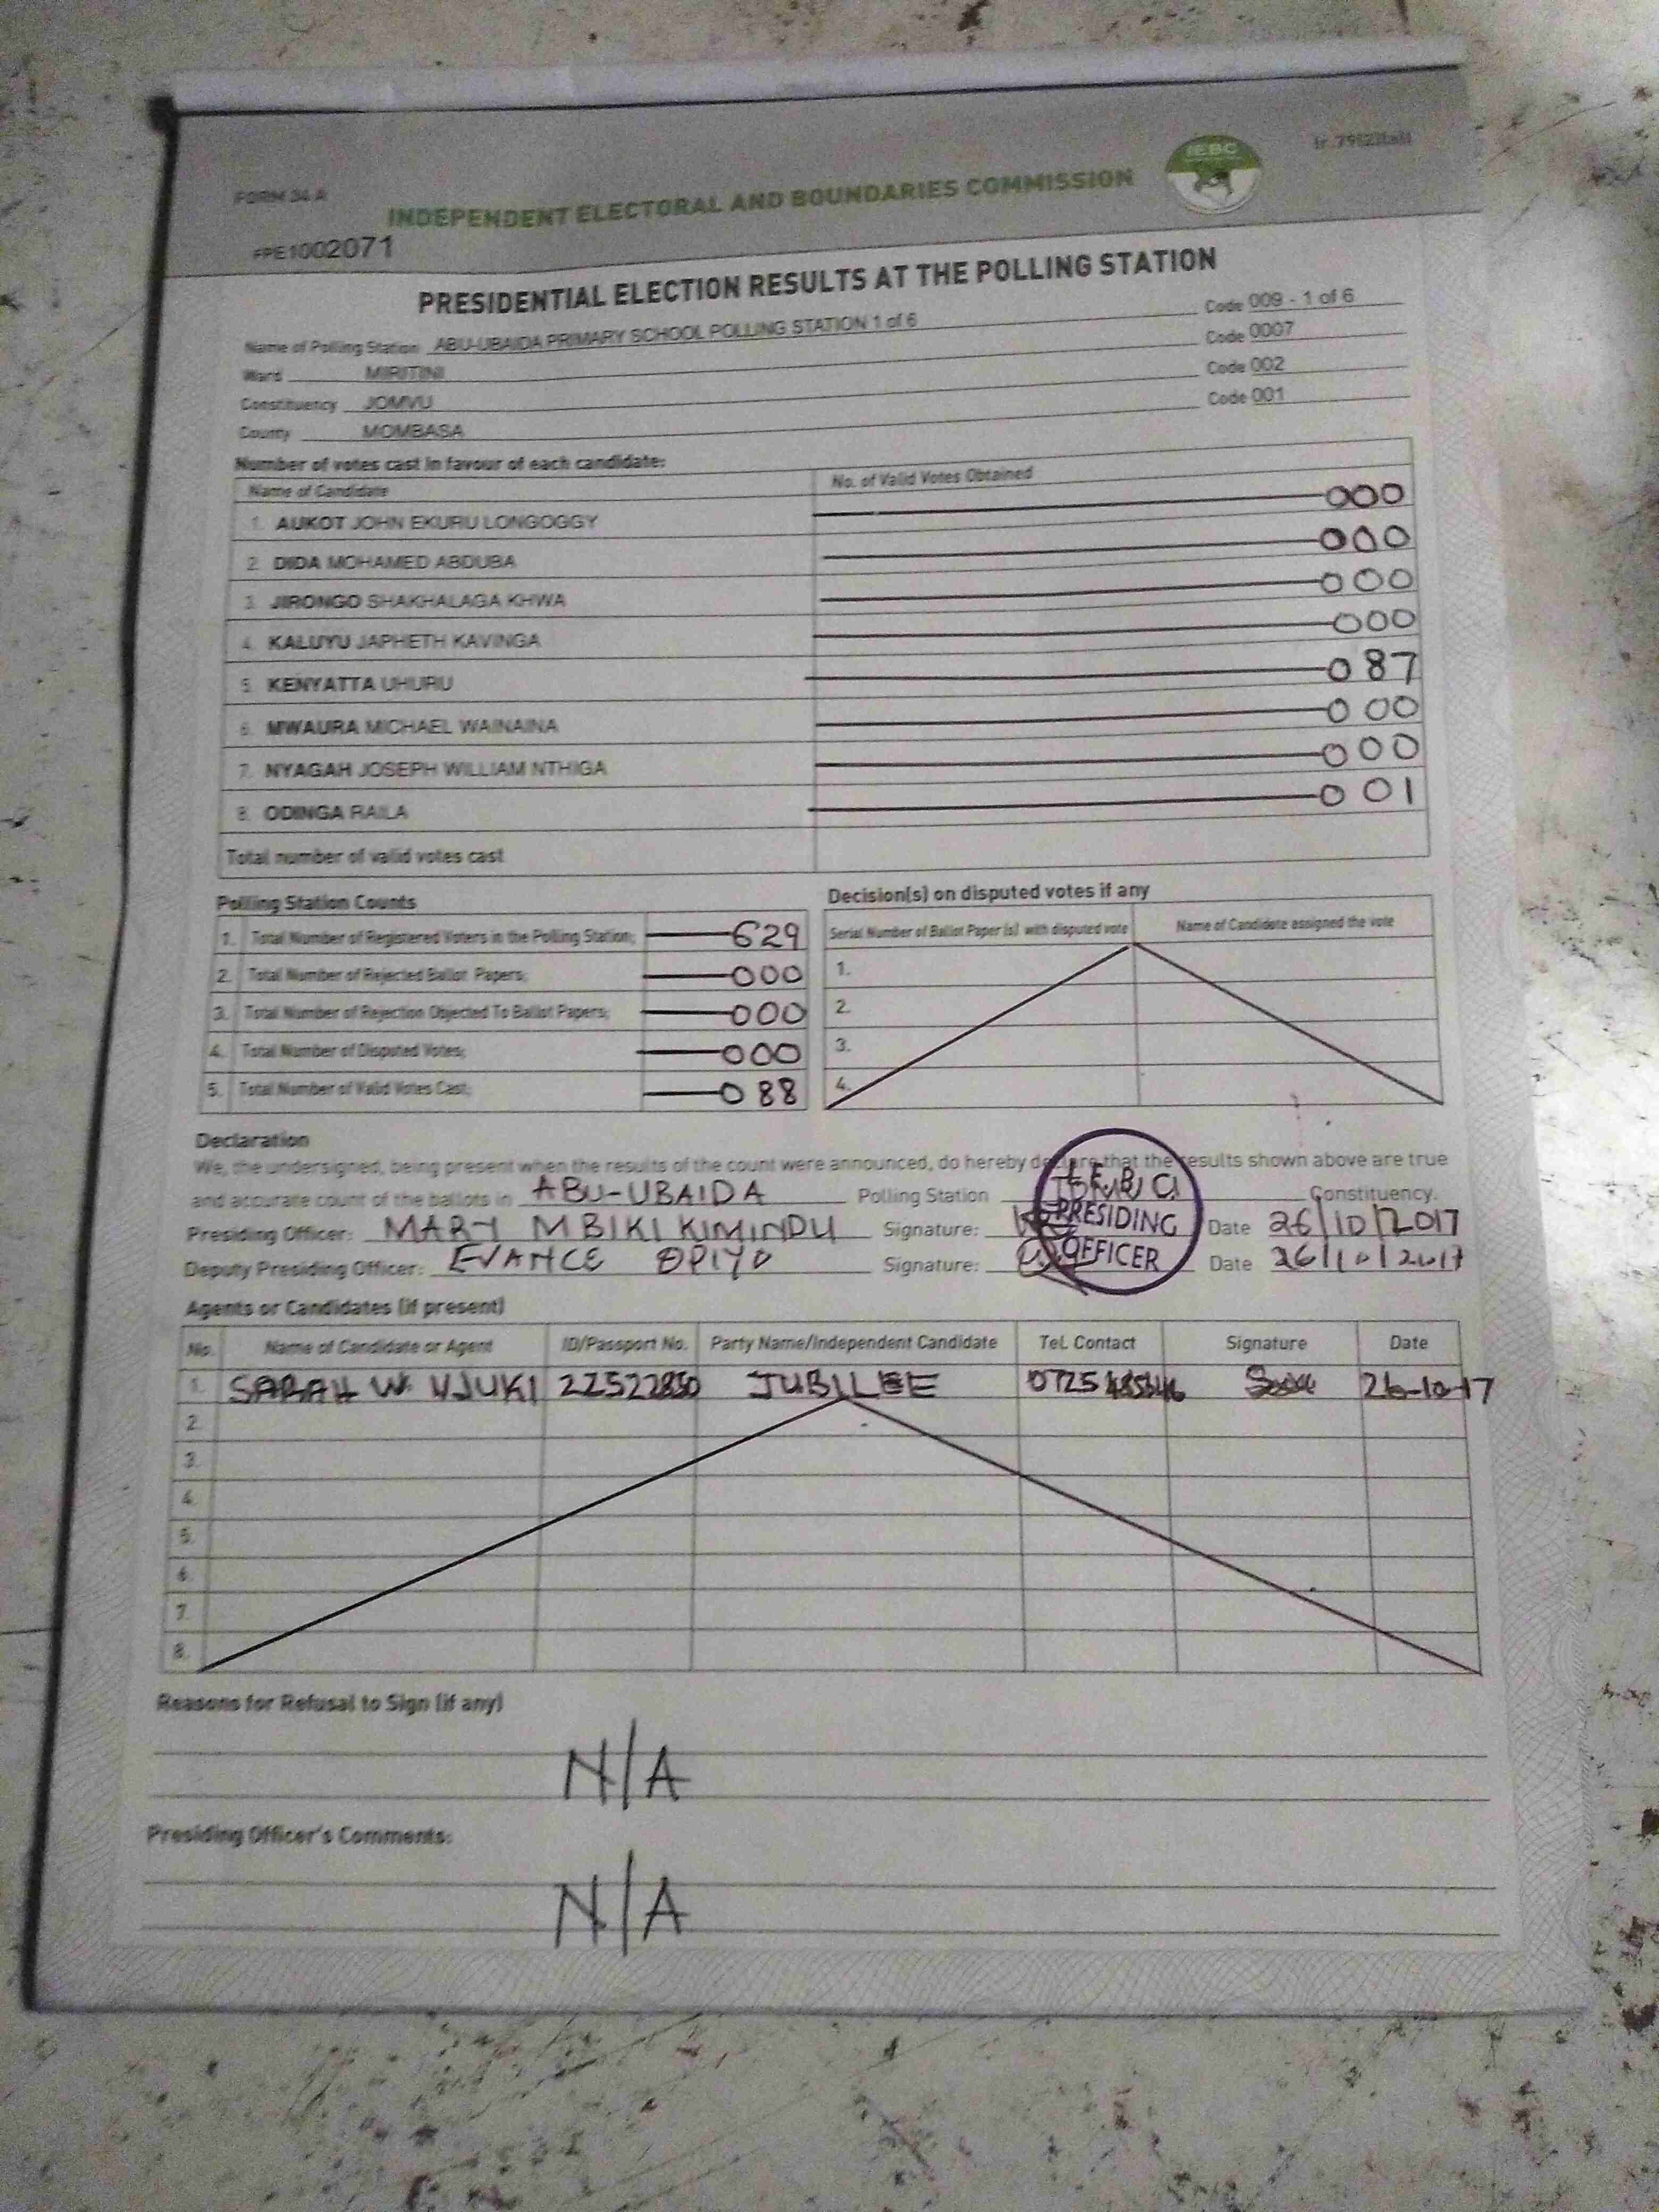 FORM 34 A
INDEPENDENT ELECTORAL AND BOUNDARIES COMMISSION
IEBC
FPE1002071
PRESIDENTIAL ELECTION RESULTS AT THE POLLING STATION
Name of Polling Station ABU-UBAIDA PRIMARY SCHOOL POLLING STATION 1 of 6 Code 009 - 1 of 6
Ward MIRITINI Code 0007
Constituency JOMVU Code 002
County MOMBASA Code 001
Number of votes cast in favour of each candidate:
Name of Candidate No. of Valid Votes Obtained
1. AUKOT JOHN EKURU LONGOGGY 000
2. DIDA MOHAMED ABDUBA 000
3. JIRONGO SHAKHALAGA KHWA 000
4. KALUYU JAPHETH KAVINGA 000
5. KENYATTA UHURU 087
6. MWAURA MICHAEL WAINAINA 000
7. NYAGAH JOSEPH WILLIAM NTHIGA 000
8. ODINGA RAILA 001
Total number of valid votes cast
Polling Station Counts
1. Total Number of Registered Voters in the Polling Station; 629
2. Total Number of Rejected Ballot Papers; 000
3. Total Number of Rejection Objected To Ballot Papers; 000
4. Total Number of Disputed Votes; 000
5. Total Number of Valid Votes Cast; 088
Decision(s) on disputed votes if any
Serial Number of Ballot Paper (s) with disputed vote Name of Candidate assigned the vote
1.
2.
3.
4.
Declaration
We, the undersigned, being present when the results of the count were announced, do hereby declare that the results shown above are true
and accurate count of the ballots in ABU-UBAIDA Polling Station JOMVU Constituency.
Presiding Officer: MARY MBIKI KIMINDU Signature: Date 26/10/2017
Deputy Presiding Officer: EVANCE OPIYO Signature: Date 26/10/2017
I.E.B.C.
PRESIDING
OFFICER
Agents or Candidates (if present)
No. Name of Candidate or Agent ID/Passport No. Party Name/Independent Candidate Tel. Contact Signature Date
1. SARAH W. 22522850 JUBILEE 26-10-17
2.
3.
4.
5.
6.
7.
8.
Reasons for Refusal to Sign (if any)
N/A
Presiding Officer's Comments:
N/A